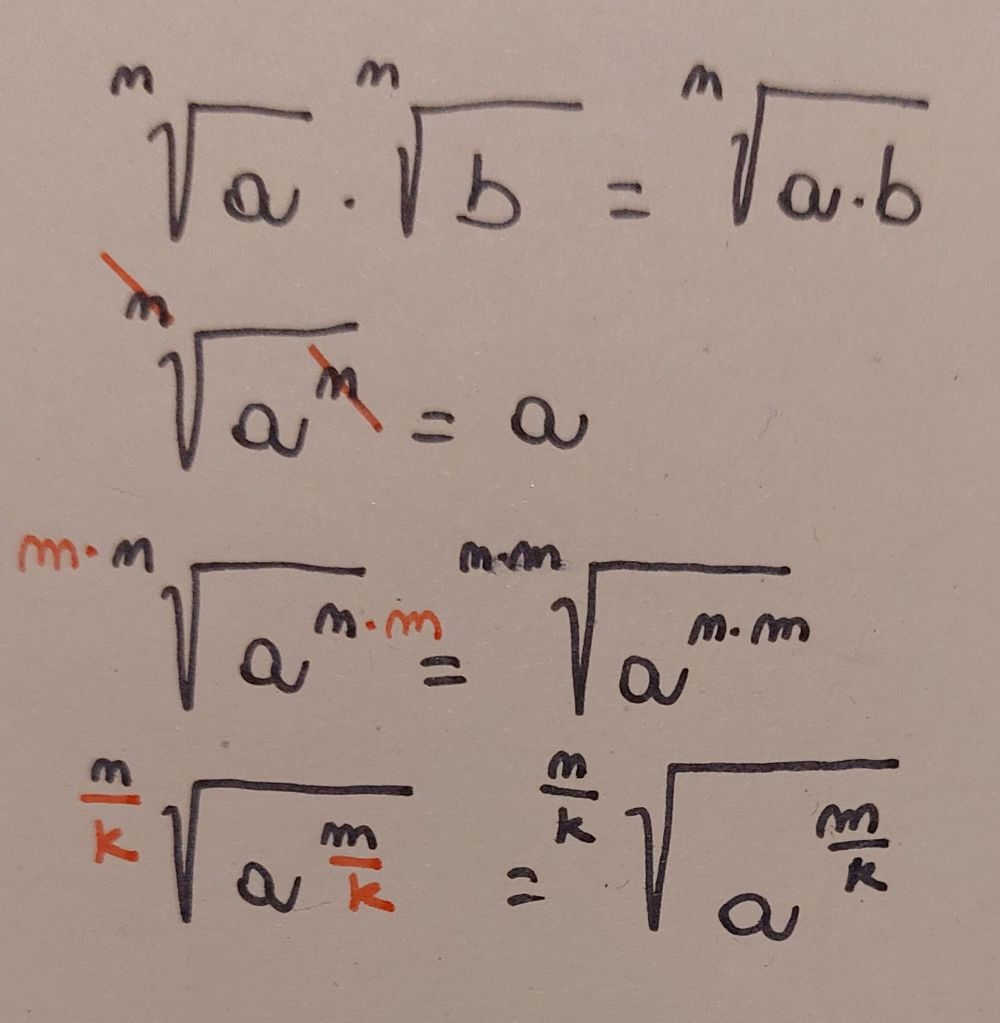 ⁿ√a · ⁿ√b = ⁿ√(a·b)
ⁿ√(aⁿ) = a
m·n√(a^(n·m)) = n·m√(a^(n·m))
n/k√(a^(m/k)) = n/k√(a^(m/k))